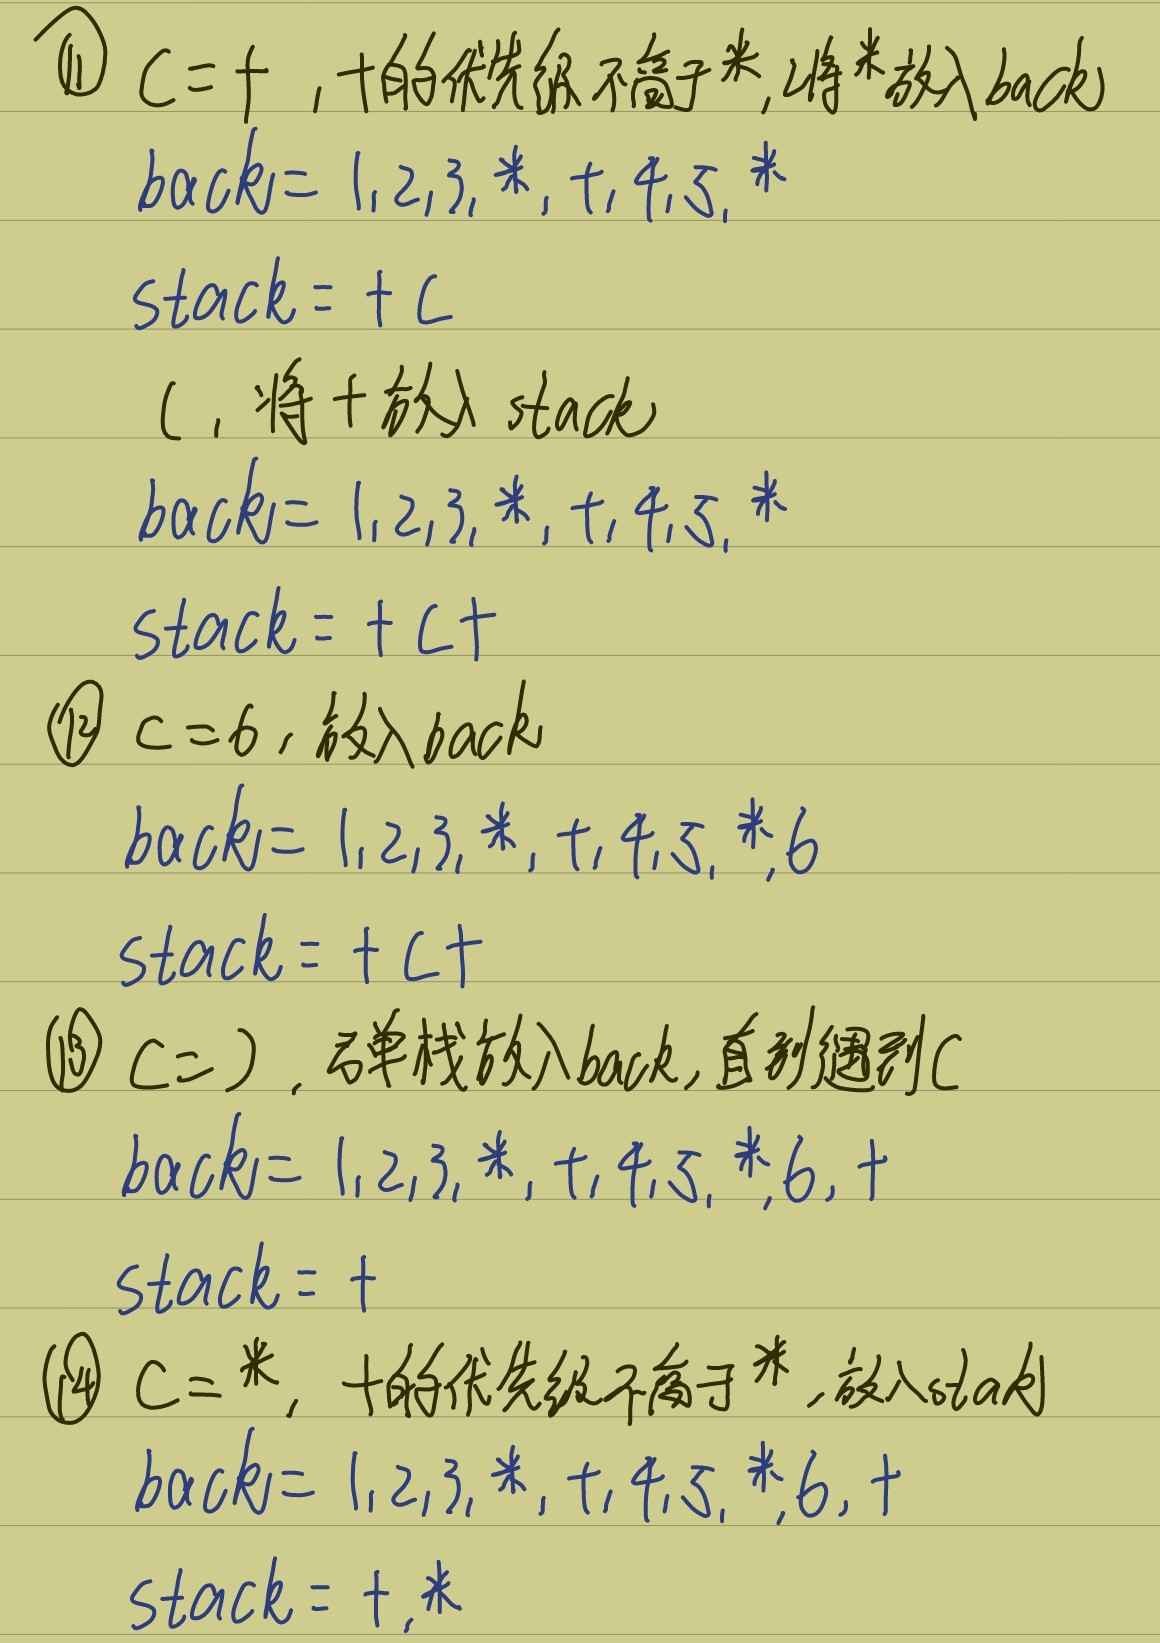 ⑪ C=+,+的优先级不高于*,将*放入back
back=1,2,3,*,+,4,5,*
stack=+(
(,将+放入stack
back=1,2,3,*,+,4,5,*
stack=+(+
⑫ C=6,放入back
back=1,2,3,*,+,4,5,*,6
stack=+(+
⑬ C=),弹栈放入back,直到遇到(
back=1,2,3,*,+,4,5,*,6,+
stack=+
⑭ C=*,+的优先级不高于*,放入stack
back=1,2,3,*,+,4,5,*,6,+
stack=+,*